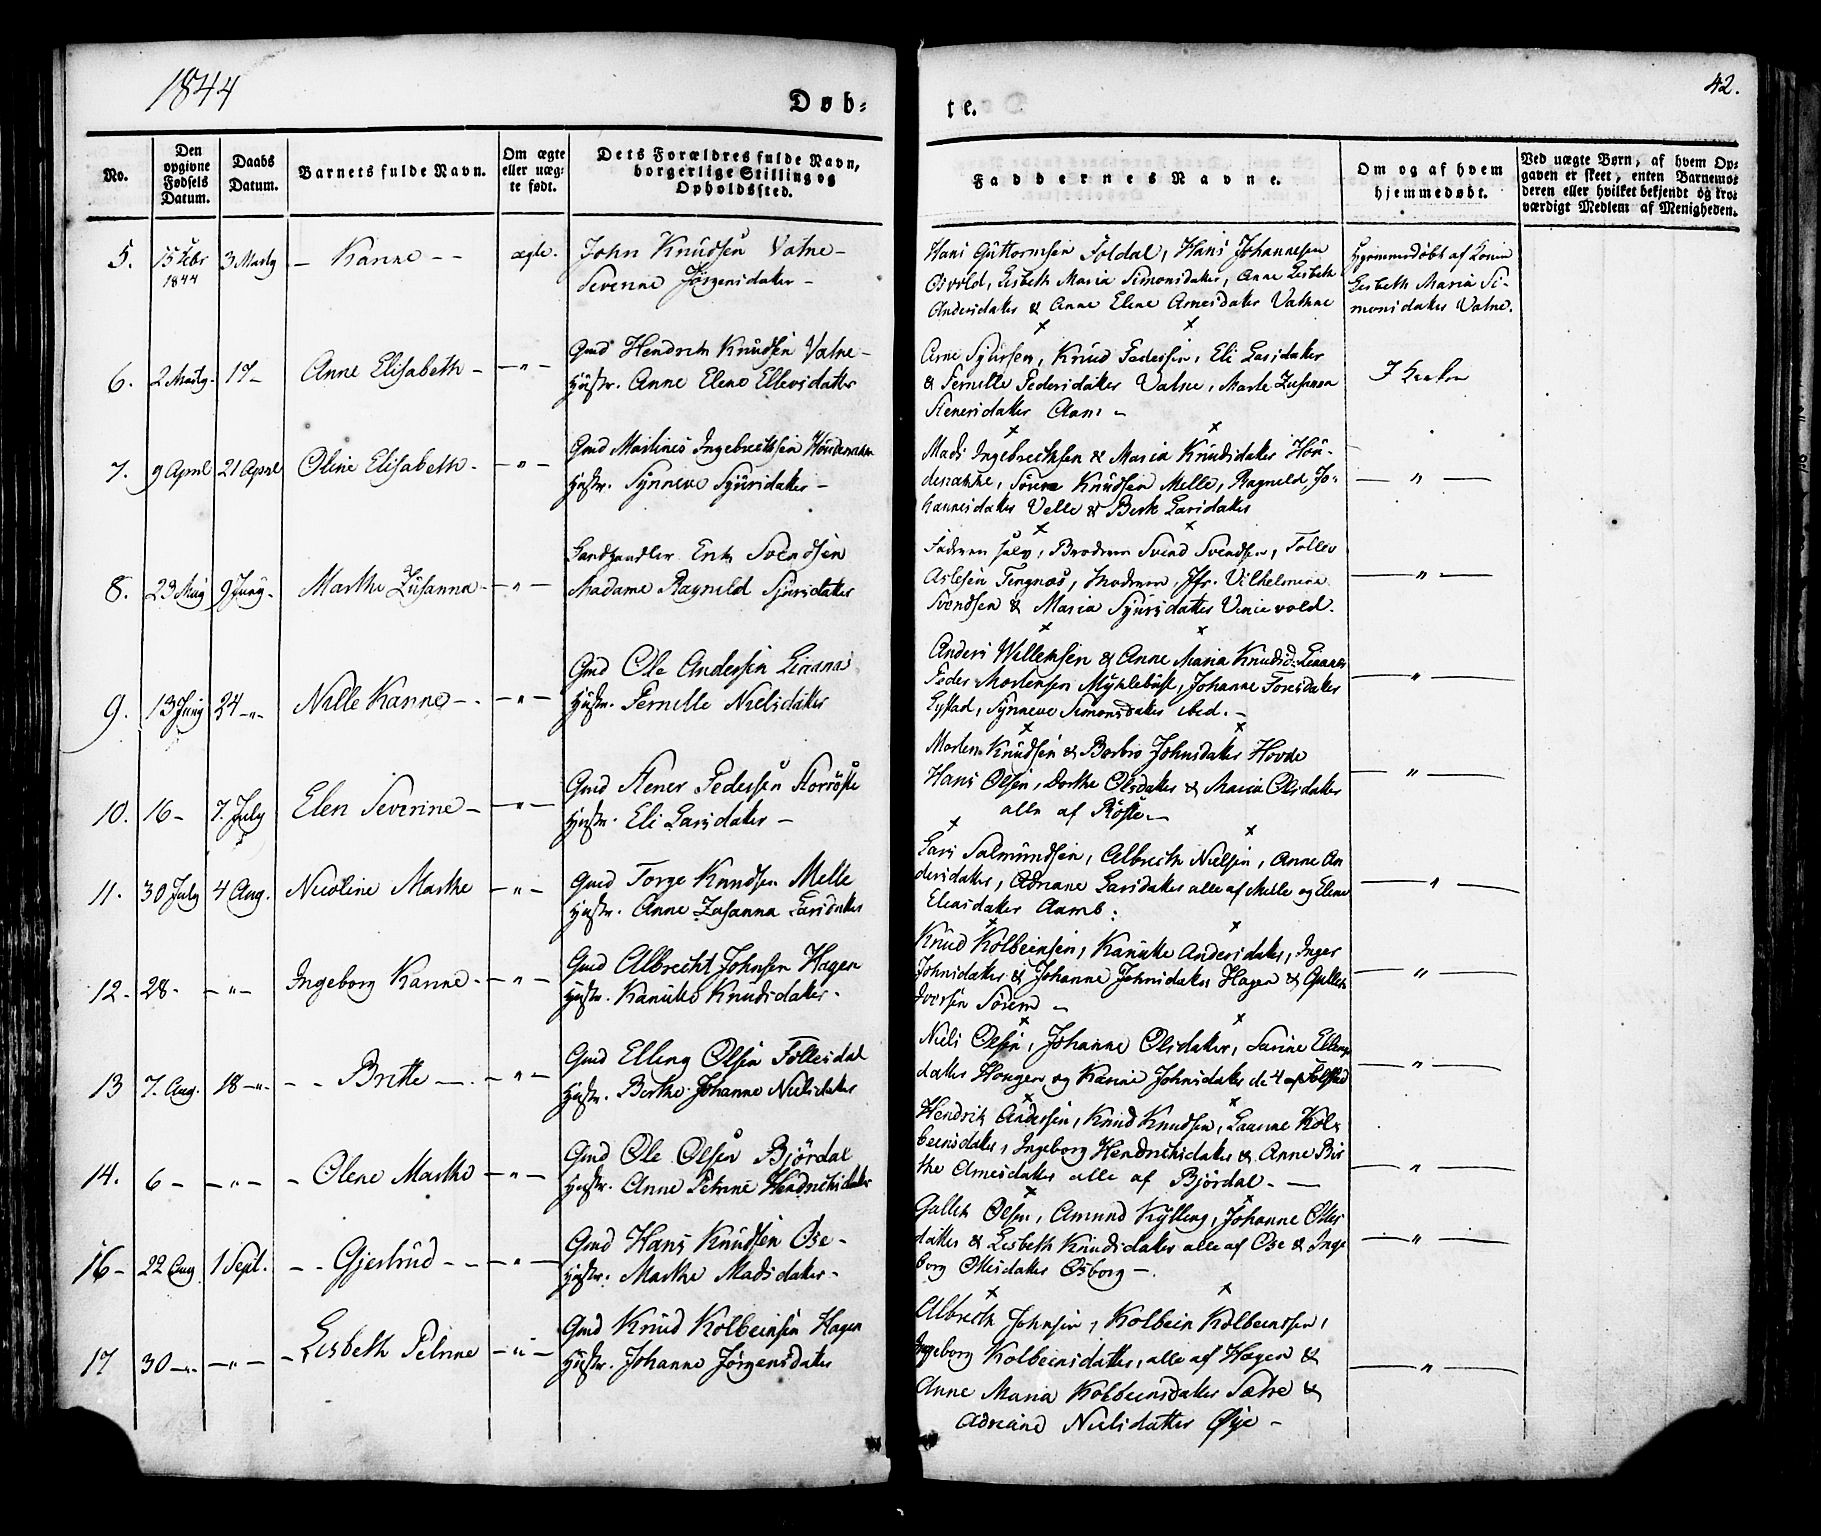 1844
Døb-
te.
42.
No.
Den
opgivne
Fødsels
Datum.
Daabs
Datum.
Barnets fulde Navn.
Om ægte
eller uæg-
te født.
Dets Forældres fulde Navn,
borgerlige Stilling og
Opholdssted.
Faddernes Navne.
Om og af hvem
hjemmedøbt.
Ved uægte Børn, af hvem Op-
gaven er skeet, enten Barnemo-
deren eller hvilket bekjendt og tro-
værdigt Medlem af Menigheden.
5. 15 Febr 3 Marty – Hanne – – ægte. John Knudsen Vatne –
1844
Severine Jörgensdatter –
Hans Guttormsen Foldal, Hans Johannesen
Osvold, Lisbeth Maria Simonsdatter, Anne Lisbeth
Andersdatter & Anne Elene Arnesdatter Vatne
Hjemmedøbt af
Lisbeth Maria Si-
monsdatter Vatne.
6. 2 Marty. 17 – Anne Elisabeth – – " – Gmd Hendrik Knudsen Vatne –
Hustr. Anne Elene Ellevsdatter
Arne Sjursen, Knud Pedersen, Eli Larsdatter
& Pernille Pedersdatter Vatne, Marte Zusanna
Stenersdatter Aam –
I Kirken
7. 9 April 21 April Oline Elisabeth – – " – Gmd Martines Ingebrectsen
Hustr. Synneve Sjursdatter –
Mads Ingebrectsen & Maria Knudsdatter Hon-
denakke, Knudsen Melle, Ragneld Jo-
hannesdatter Velle & Larsdatter
– " –
8. 23 May 9 Juny – Marthe Zusanna – – " – Landhandler Enk Svendsen
Madame Ragneld Sjursdatter
Faderen selv, Broderen Svend Svendsen, Tollev
Aslesen Moderen, Jfr. Vilhelmina
Svendsen & Maria Sjursdatter Vinievold.
– " –
9. 13 Juny 24 – " – Nille Hanne – – " – Gmd Ole Andersen
Hustr. Pernille Nielsdatter
Anders Willemsen & Anne Maria Knudsd.
Peder Mortensen Myklebust, Johanne
Synneve Simonsdatter ibid. –
– " –
10. 16 – 7. July Elen Severine – – " – Gmd Stener Pedersen
Hustr. Eli Larsdatter –
Morten Knudsen & Barbro Johnsdatter Hovde
Hans Olsen, Dorthe Olsdatter & Maria Olsdatter
alle af Röste. –
– " –
11. 30 July 4 Aug. Nicoline Marthe – " – Gmd Torge Knudsen Melle
Hustr. Anne Zusanna Larsdatter
Lars Salmundsen, Albrecth Nielsen, Anne An
dersdatter, Adriane Larsdatter alle af Melle og Elene
Eliasdatter Aamb:
– " –
12 – 28 – – " – Ingeborg Hanne – – " – Gmd Albrecht Johnsen Hagen
Hustr. Hanikes Knudsdatter –
Knud Kolbeinsen, Hanikke Andersdatter, Inger
Johnsdatter & Johanne Johnsdatter Hagen & Gullek
Iversen –
– " –
13 7. Aug. 18 – " – – – Britte – – " – Gmd Elling Olsen Follesdal
Hustr. Berthe Johanne Nielsdatter
Niels Olsen, Johanne Olsdatter, Sevrine Ellings
datter Hougen og Karine Johnsdatter de 4 af
– " –
14. 6 – – " – – Olene Marthe – " – Gmd Ole Olsen Björdal
Hustr. Anne Petrine Hendrichsdatter
Hendrik Andersen, Knud Knudsen, Laurine Kol-
beinsdatter, Ingeborg Hendrichsdatter & Anne Bir
the Arnesdatter alle af Björdal. –
– " –
16 – 22 Aug 1 Sept. – – Gjertrud – – – " – Gmd Hans Knudsen Ose –
Hustr. Marthe Madsdatter –
Gullek Olsen, Amund Kylling, Johanne Olles
datter & Lisbeth Knudsdatter alle af Ose & Inge
borg Ollesdatter Osborg –.
– " –
17 30 – " – – " – – Lisbeth Petrine – " – Gmd Knud Kolbeinsen Hagen
Hustr. Johanne Jörgensdatter
Albrecth Johnsen, Kolbein Kolbeinsen,
Ingeborg Kolbeinsdatter, alle af Hagen &
Anne Maria Kolbeinsdatter Sætre &
Adriane Nielsdatter Øye –
– " –